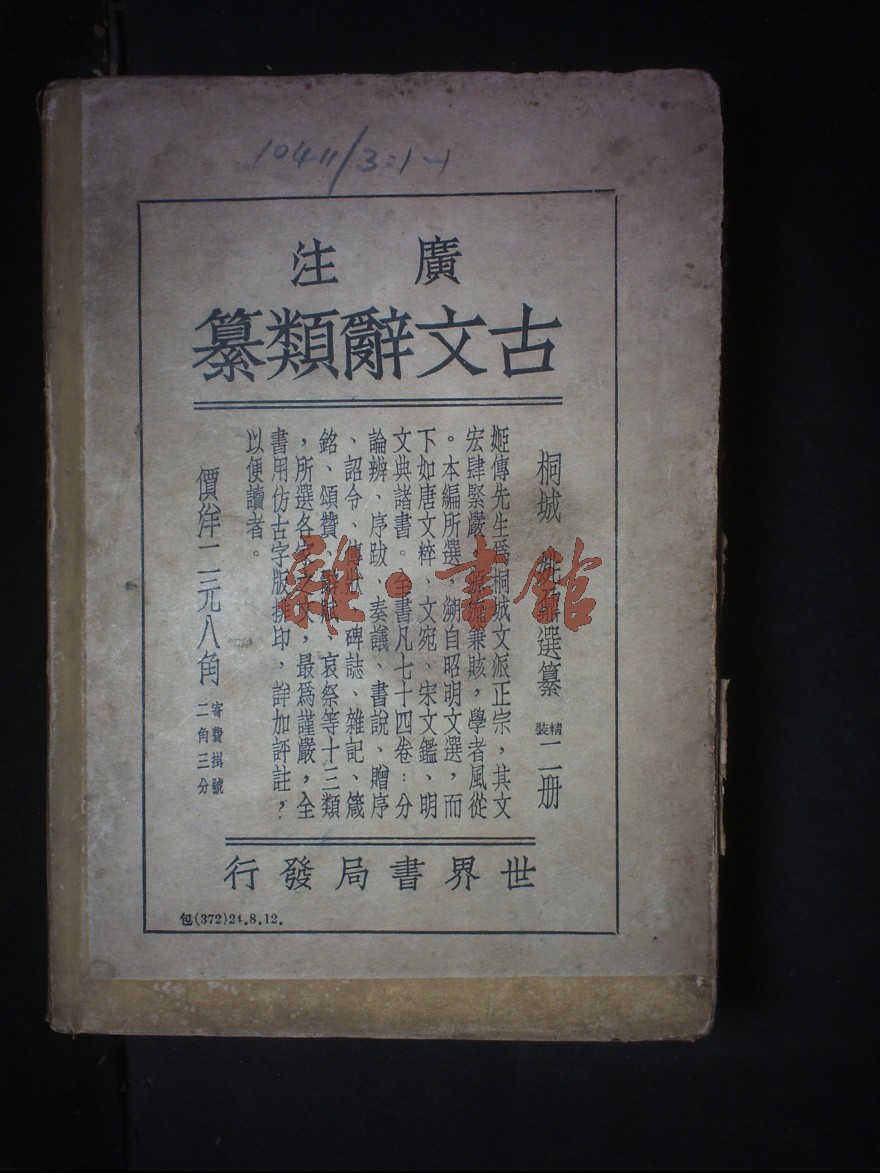 10411/3:1-1
廣注
古文辭類纂
桐城　姚鼐選纂　精裝二册
姬傳先生爲桐城文派正宗，其文
宏肆緊嚴，源流兼賅，學者風從
。本編所選，溯自昭明文選，而
下如唐文粹、文宛、宋文鑑、明
文典諸書。全書凡七十四卷：分
論辨、序跋、奏議、書說、贈序
、詔令、傳狀、碑誌、雜記、箴
銘、頌贊、辭賦、哀祭等十三類
，所選各家之文，最爲謹嚴，全
書用仿古字版排印，詳加評註，
以便讀者。
價洋二元八角
寄費掛號
二角三分
世界書局發行
包(372)24.8.12.
雜·書館